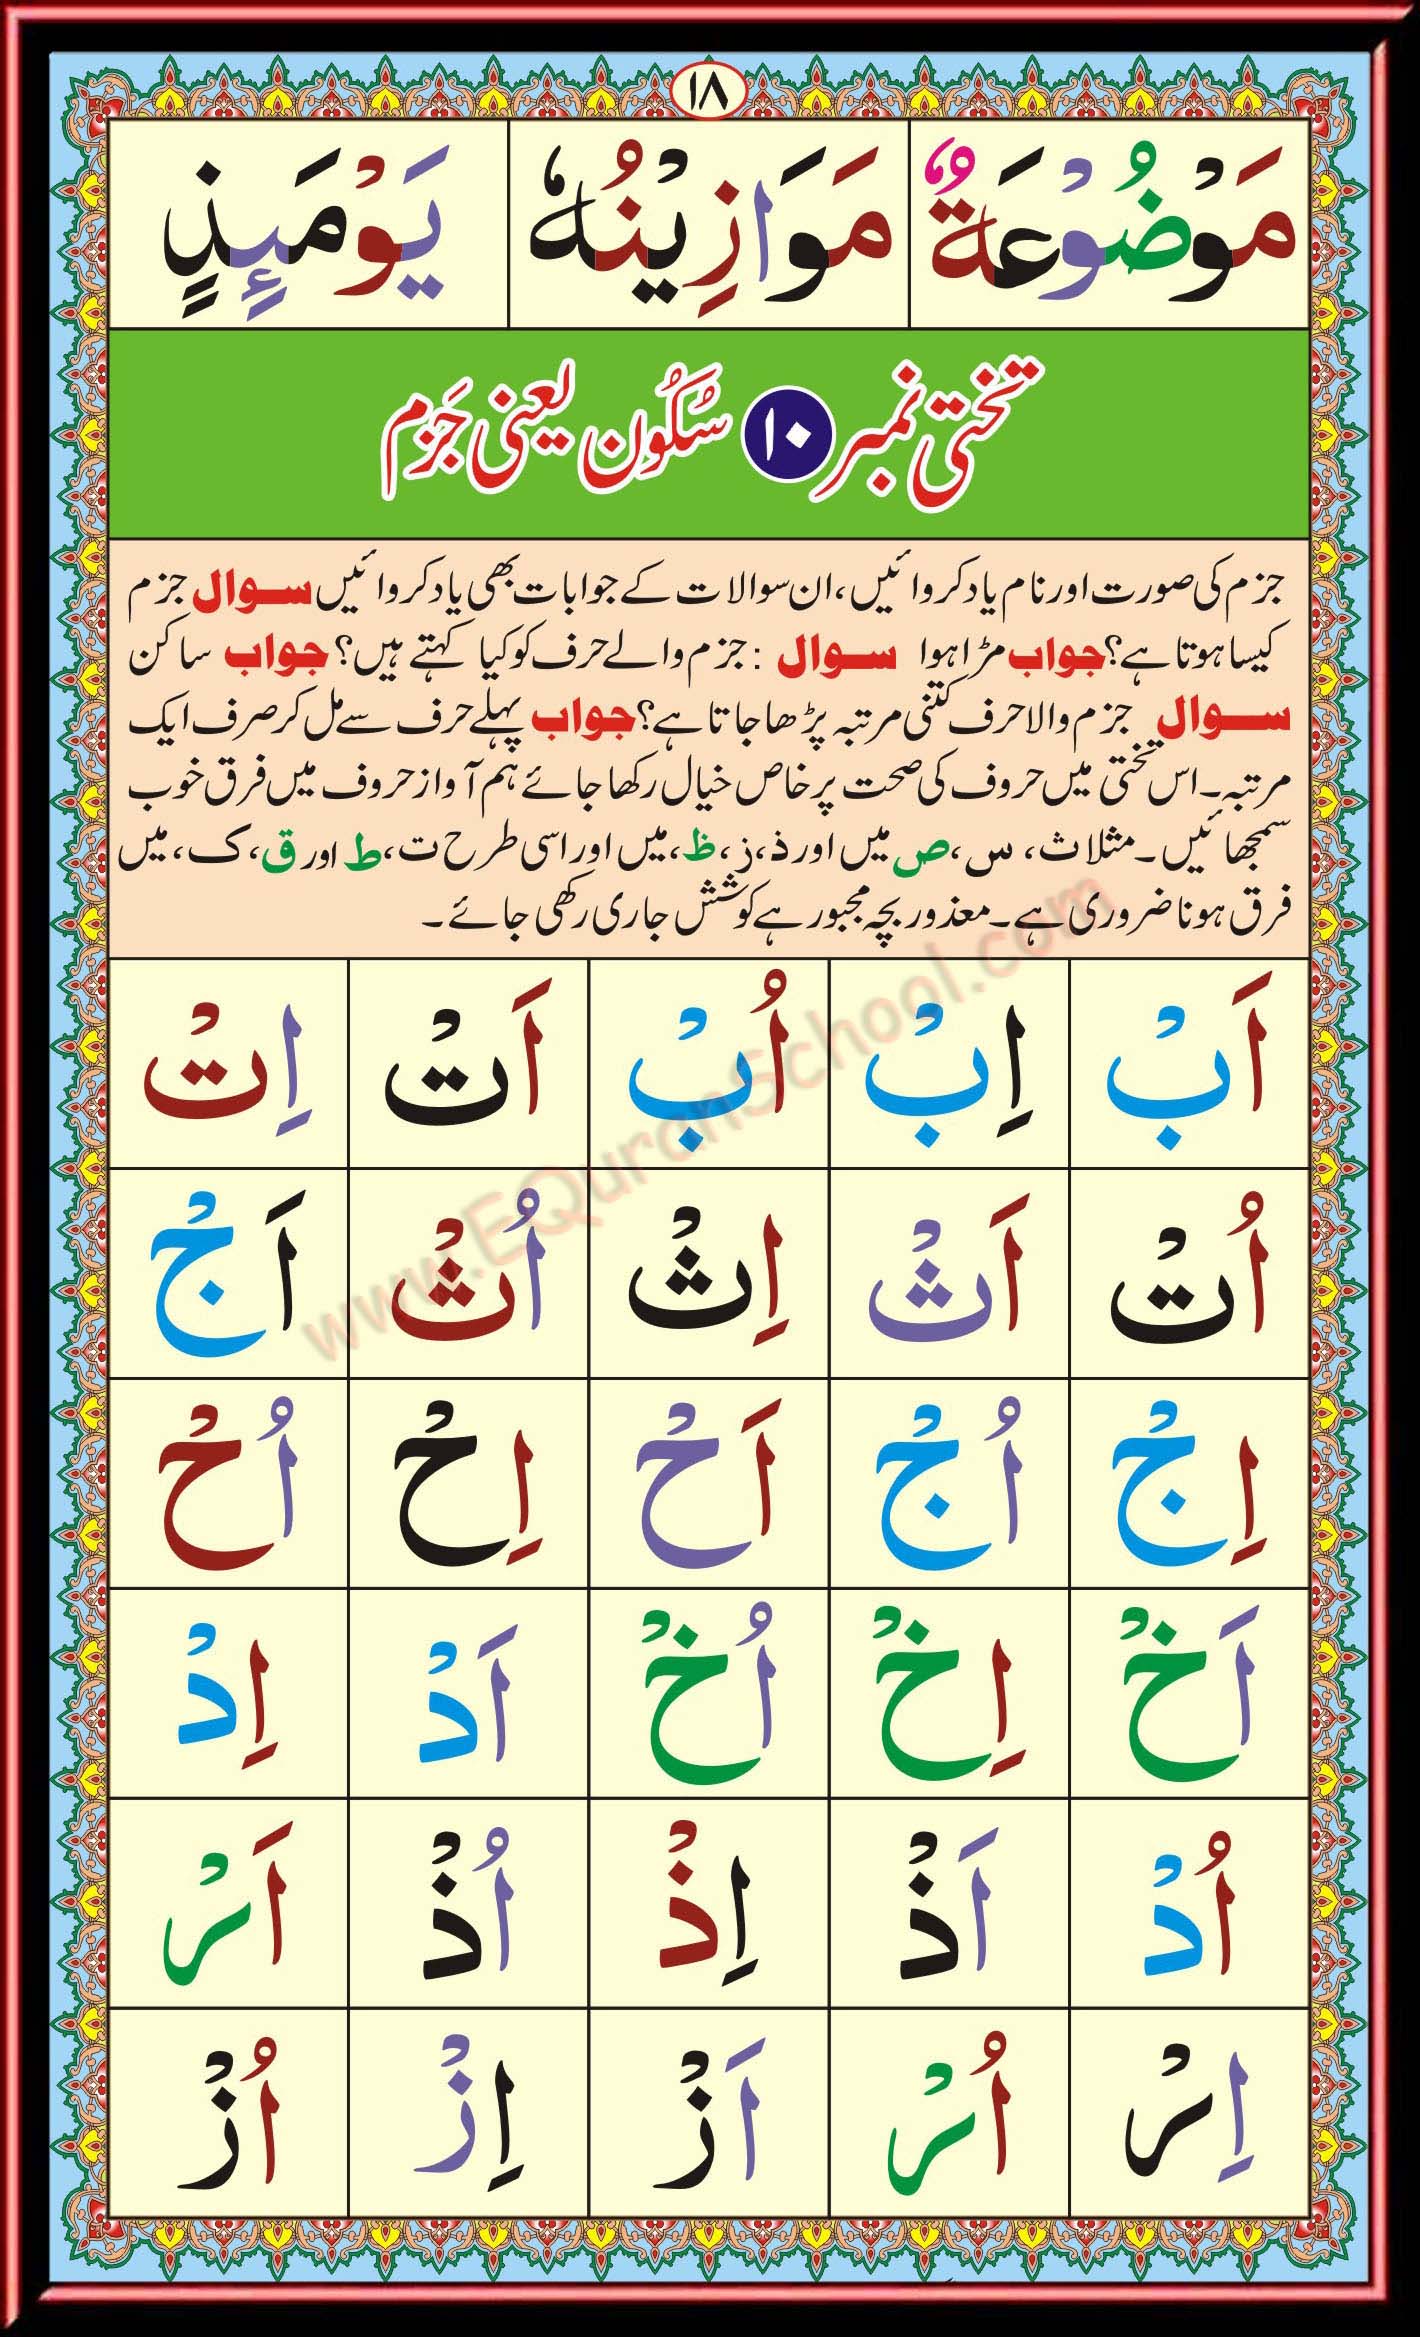 ١٨
مَوْضُوْعَةٌ مَوَازِيْنُهٗ يَوْمَئِذٍ
تختی نمبر ١٠ سُکُون یعنی جَزم
جزم کی صورت اور نام یاد کروائیں، ان سوالات کے جوابات بھی یاد کروائیں سوال جزم
کیسا ہوتا ہے؟ جواب مڑا ہوا سوال : جزم والے حرف کو کیا کہتے ہیں؟ جواب ساکن
سوال جزم والا حرف کتنی مرتبہ پڑھا جاتا ہے؟ جواب پہلے حرف سے مل کر صرف ایک
مرتبہ۔ اس تختی میں حروف کی صحت پر خاص خیال رکھا جائے ہم آواز حروف میں فرق خوب
سمجھائیں۔ مثلا ث، س، ص میں اور ذ، ز، ظ، میں اور اسی طرح ت، ط اور ق، ک، میں
فرق ہونا ضروری ہے۔ معذور بچہ مجبور ہے کوشش جاری رکھی جائے۔
اَبْ اِبْ اُبْ اَتْ اِتْ
اُتْ اَثْ اِثْ اُثْ اَجْ
اِجْ اُجْ اَحْ اِحْ اُحْ
اَخْ اِخْ اُخْ اَدْ اِدْ
اُدْ اَذْ اِذْ اُذْ اَرْ
اِرْ اُرْ اَزْ اِزْ اُزْ
www.EQuranSchool.com